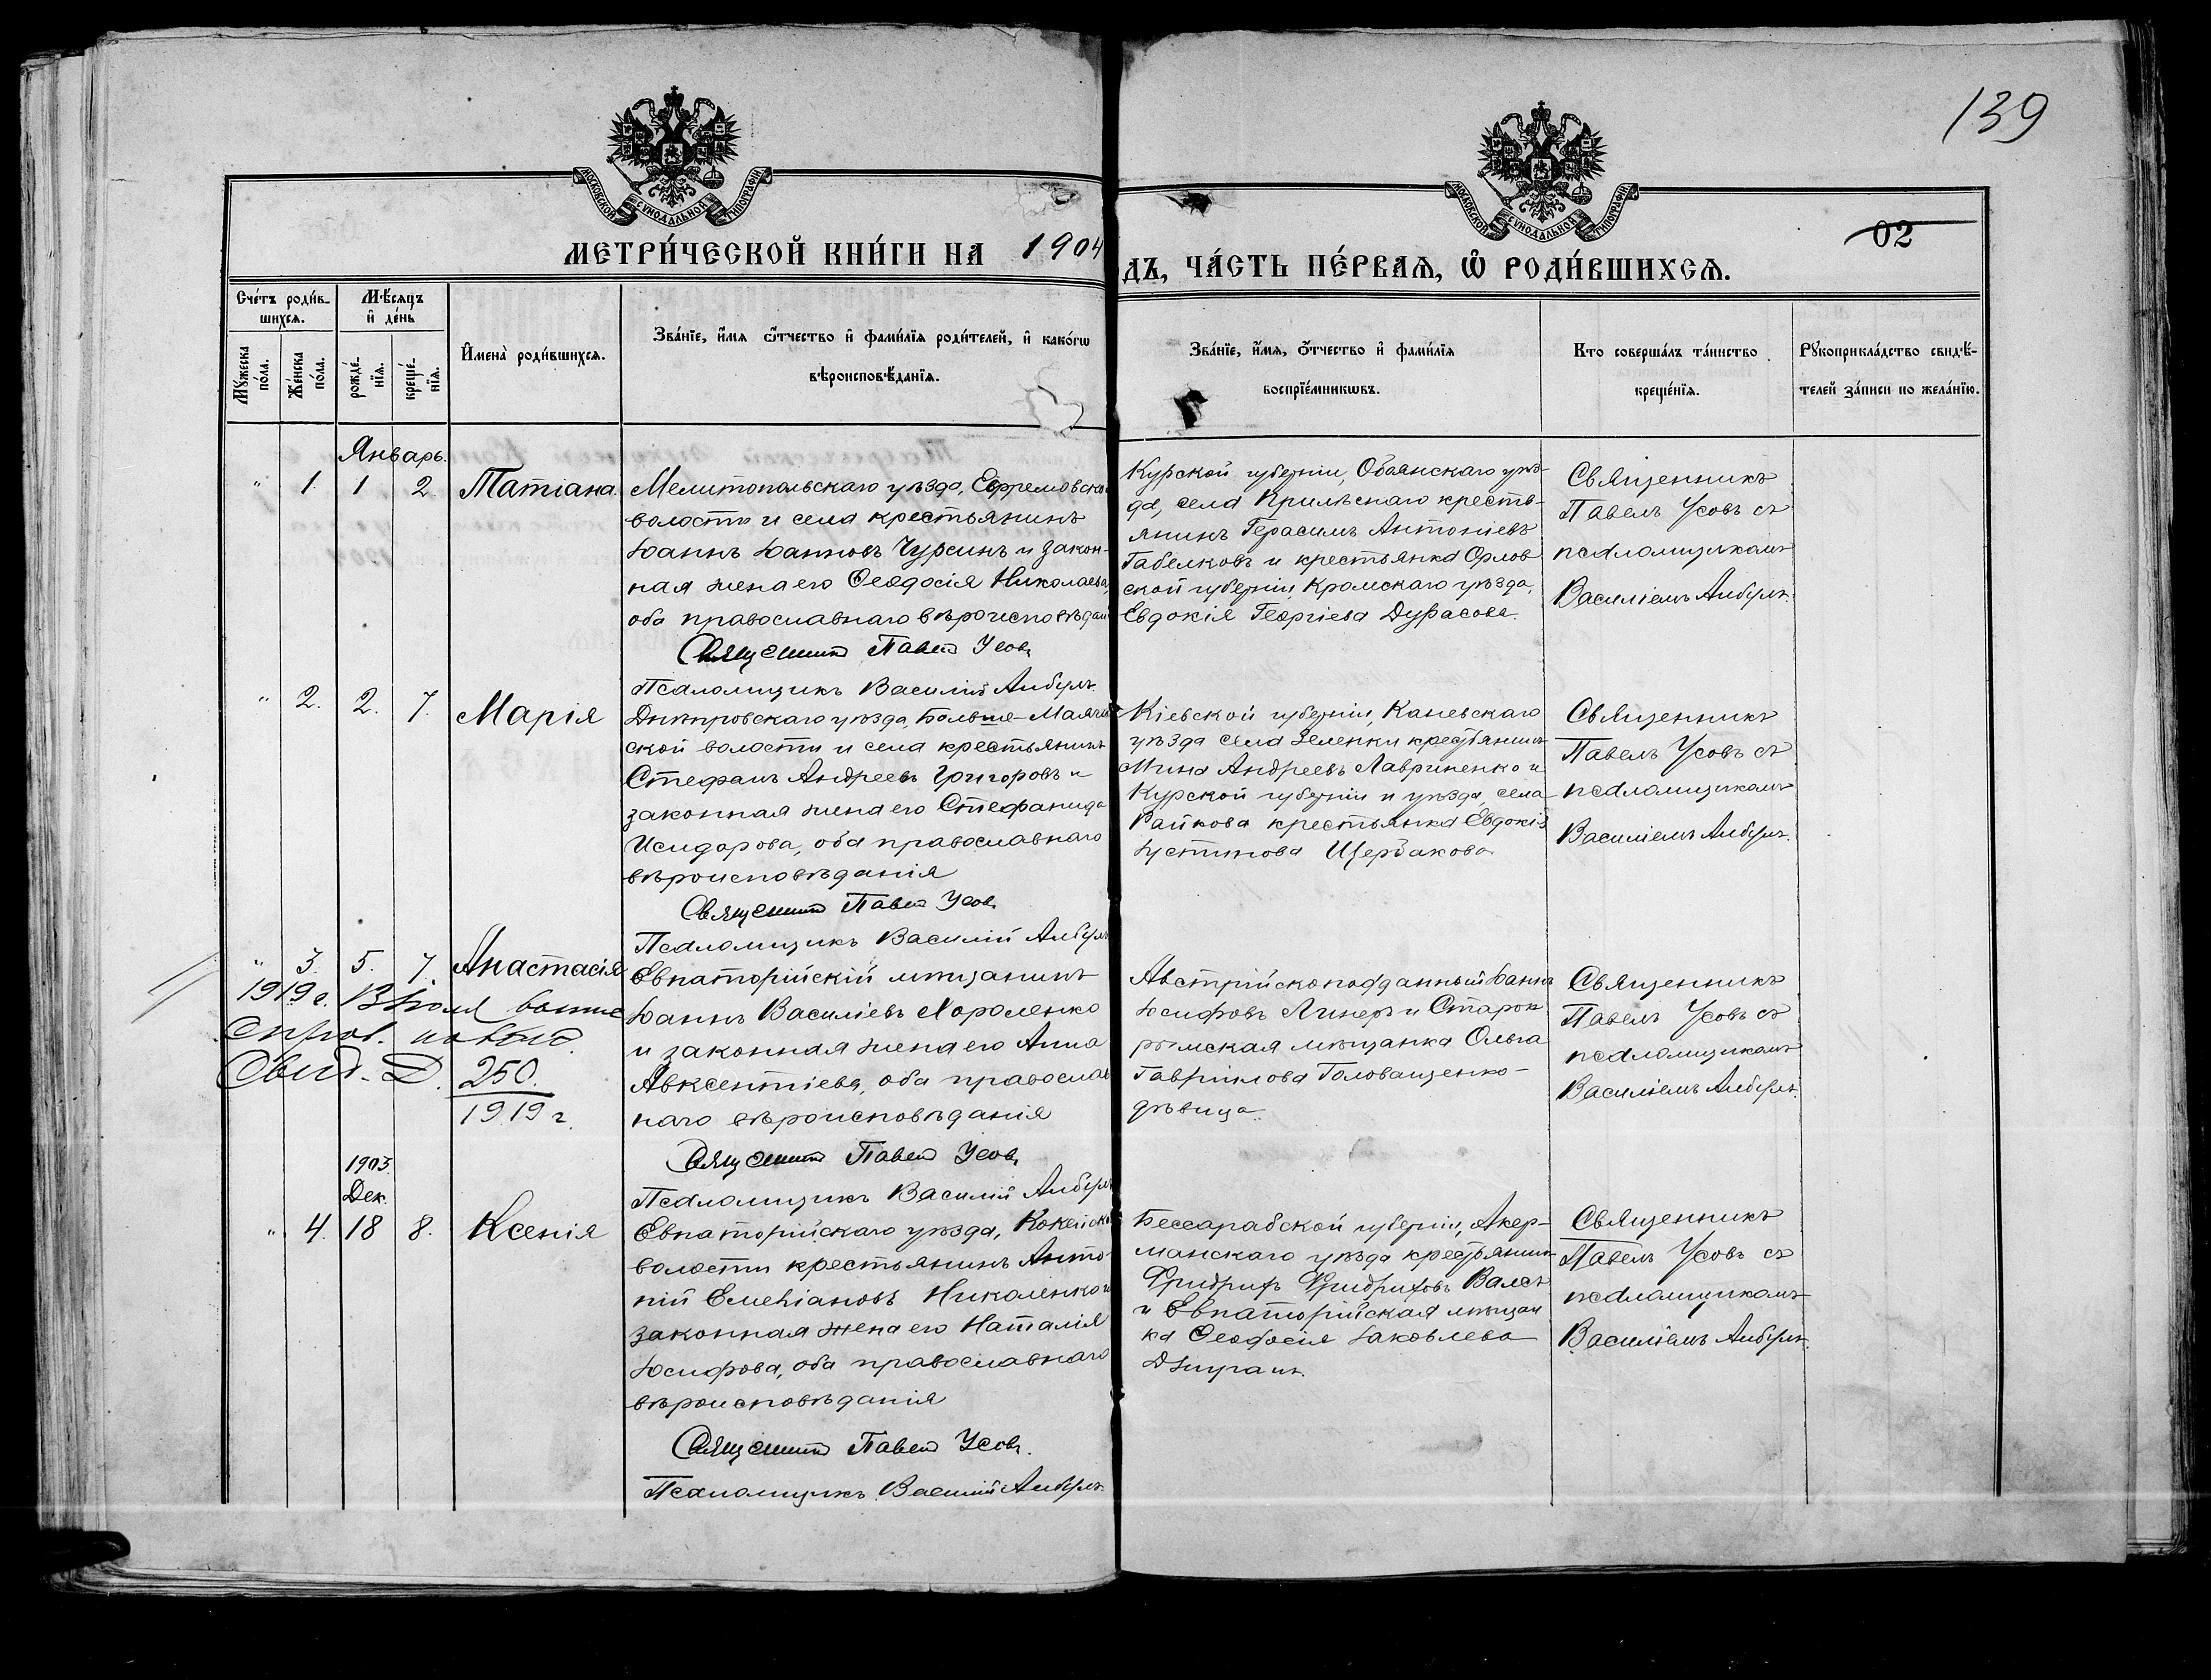 139
МОСКОВСКОЙ СѴНОДАЛЬНОЙ ТИПОГРАФІИ
МОСКОВСКОЙ СѴНОДАЛЬНОЙ ТИПОГРАФІИ
02
МЕТРИ́ЧЕСКОЙ КНИ́ГИ НА 1904
ДЪ, ЧА́СТЬ ПЕ́РВАѦ, Ѡ҆ РОДИ́ВШИХСѦ.
Сче́тъ роди́в-
шихсѧ.
Мѣ́сѧцъ
и҆ де́нь
Мꙋ́жеска
по́ла.
Же́нска
по́ла.
рожде́-
нїѧ.
креще́-
нїѧ.
И҆мена̀ роди́вшихсѧ.
Зва́нїе, и҆́мѧ ѻ҆́тчество и҆ фамі́лїѧ роди́телей, и҆ како́гѡ
вѣроисповѣ́данїѧ.
Зва́нїе, и҆́мѧ, ѻ҆́тчество и҆ фамі́лїѧ
воспрїе́мникѡвъ.
Кто соверша́лъ та́инство
креще́нїѧ.
Рꙋкоприкла́дство свидѣ́-
телей за́писи по жела́нїю.
Январь.
" 1. 1 2. Татіана.
Мелитопольскаго уѣзда, Ефремовско
волости и села крестьянинъ
Іоаннъ Іоанновъ Чурсинъ и закон-
ная жена его Ѳеодосія Николаева,
оба православнаго вѣроисповѣдан
Священникъ Павелъ Усовъ
Псаломщикъ Василій
Курской губерніи, Обоянскаго уѣз-
да, села крестья-
янинъ Герасимъ Антоніевъ
Габелковъ и крестьянка Орлов
ской губерніи, Кромскаго уѣзда,
Евдокія Георгіева Дурасова.
Священникъ
Павелъ Усовъ съ
псаломщикомъ
Василіемъ
" 2. 2. 7. Марія
Днѣпровскаго уѣзда, Больше-Маячк
ской волости и села крестьянинъ
Стефанъ Андреевъ Григоровъ и
законная жена его Стефанида
Исидорова, оба православнаго
вѣроисповѣданія
Священникъ Павелъ Усовъ
Псаломщикъ Василій
Кіевской губерніи, Каневскаго
уѣзда села Зеленки крестьянинъ
Мина Андреевъ Лавриненко и
Курской губерніи и уѣзда, села
Райкова крестьянка Евдокія
Іустинова Щербакова
Священникъ
Павелъ Усовъ съ
псаломщикомъ
Василіемъ
" 3. 5. 7. Анастасія
1919 г.
Свид. 250.
1919 г.
Евпаторійскій мѣщанинъ
Іоаннъ Василіевъ Короленко
и законная жена его Анна
Авксентіева, оба православ
наго вѣроисповѣданія
Священникъ Павелъ Усовъ
Псаломщикъ Василій
Австрійскоподданный Іоаннъ
Іосифовъ Линеръ и Старок
рымская мѣщанка Ольга
Гавріилова Голованценко-
дѣвица.
Священникъ
Павелъ Усовъ съ
псаломщикомъ
Василіемъ
1903.
Дек.
" 4. 18 8. Ксенія
Евпаторійскаго уѣзда,
волости крестьянинъ Анто-
ній Емеліановъ Николенко и
законная жена его Наталія
Іосифова, оба православнаго
вѣроисповѣданія
Священникъ Павелъ Усовъ.
Псаломщикъ Василій
Бессарабской губерніи, Акер-
манскаго уѣзда крестьянинъ
Фридрихъ Фридриховъ
и Евпаторійская мѣщан
ка Ѳеодосія Іаковлева
Священникъ
Павелъ Усовъ съ
псаломщикомъ
Василіемъ